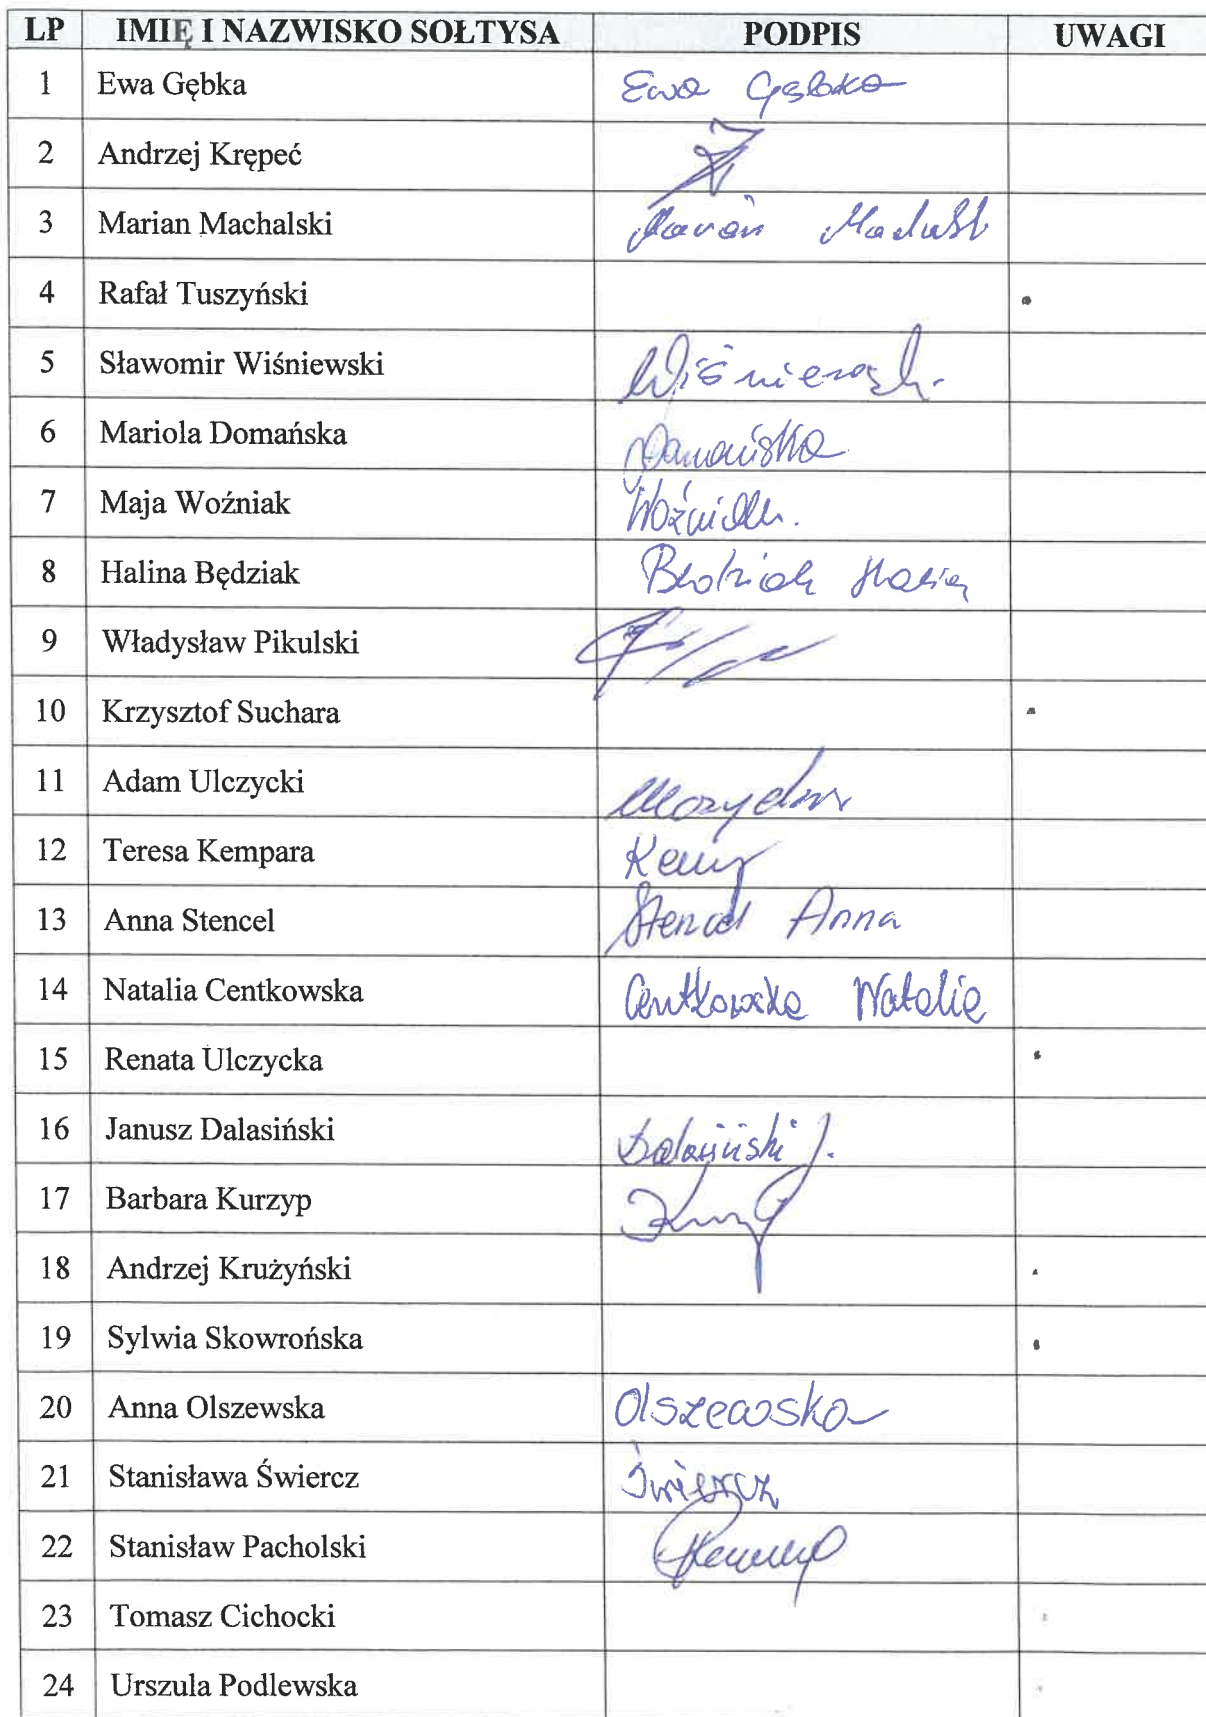 LP IMIĘ I NAZWISKO SOŁTYSA PODPIS UWAGI
1 Ewa Gębka Ewa Gębka
2 Andrzej Krępeć
3 Marian Machalski Marian
4 Rafał Tuszyński
5 Sławomir Wiśniewski
6 Mariola Domańska Domańska
7 Maja Woźniak Woźniak.
8 Halina Będziak Będziak Halina
9 Władysław Pikulski
10 Krzysztof Suchara
11 Adam Ulczycki
12 Teresa Kempara
13 Anna Stencel Stencel Anna
14 Natalia Centkowska Centkowska Natalia
15 Renata Ulczycka
16 Janusz Dalasiński Dalasiński J.
17 Barbara Kurzyp
18 Andrzej Krużyński
19 Sylwia Skowrońska
20 Anna Olszewska Olszewska
21 Stanisława Świercz Świercz
22 Stanisław Pacholski
23 Tomasz Cichocki
24 Urszula Podlewska